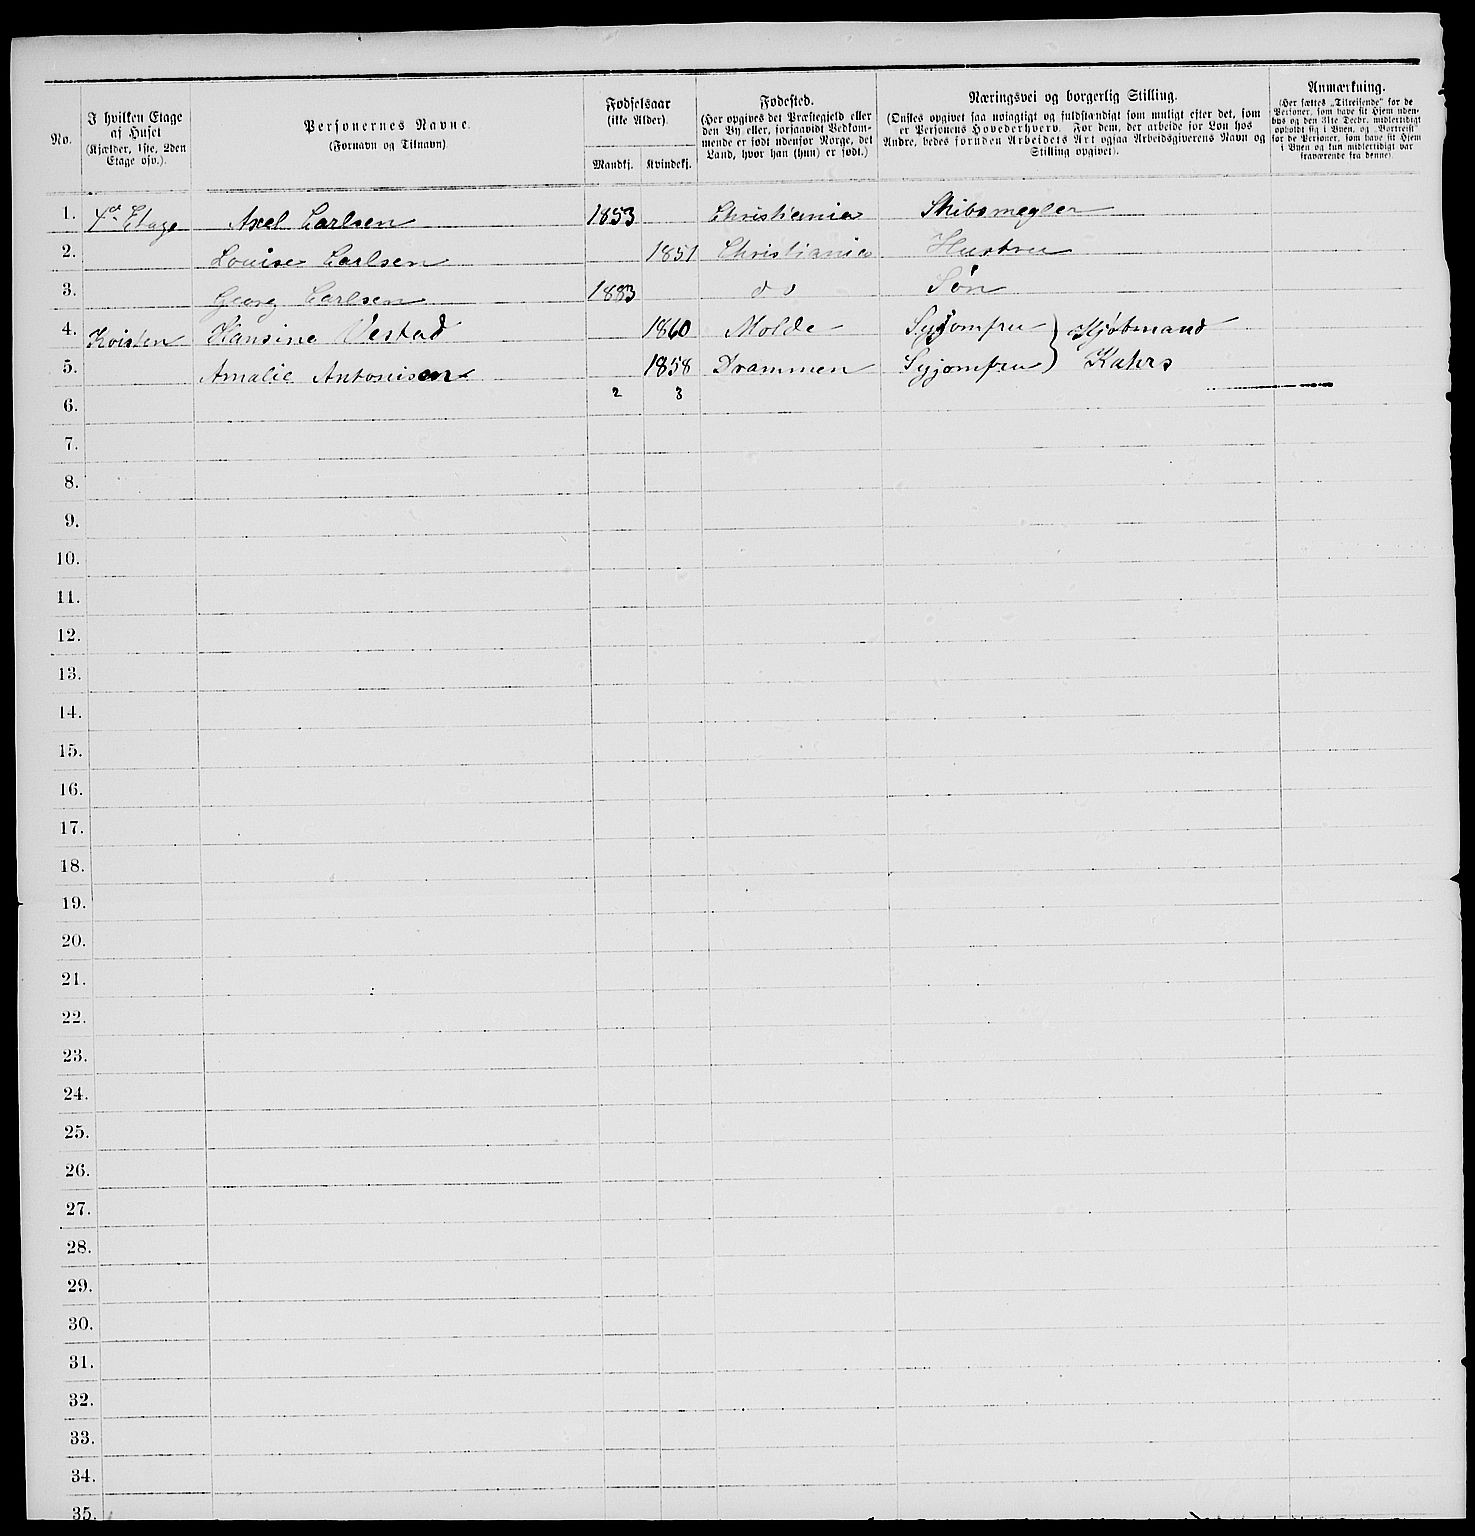 No.
I hvilken Etage
af Huset
(Kjælder, 1ste, 2den
Etage osv.).
Personernes Navne.
(Fornavn og Tilnavn)
Fødselsaar
(ikke Alder).
Mandkj. Kvindekj.
Fødested.
(Her opgives det Præstegjeld eller
den By eller, forsaavidt Vedkom-
mende er født udenfor Norge, det
Land, hvor han (hun) er født.)
Næringsvei og borgerlig Stilling.
(Ønskes opgivet saa nøiagtigt og fuldstændigt som muligt efter det, som
er Personens Hovederhverv. For dem, der arbeide for Løn hos
Andre, bedes foruden Arbeidets Art ogsaa Arbeidsgiverens Navn og
Stilling opgivet).
Anmærkning.
(Her sættes „Tilreisende“ for de
Personer, som have sit Hjem uden-
bys og den 31te Decbr. midlertidigt
opholdt sig i Byen, og „Bortreist“
for de Personer, som have sit Hjem
i Byen og kun midlertidigt var
fraværende fra denne)
1. 4de Etage Axel Carlsen 1853 Christiania Skibsmegler
2. Louise Carlsen 1851 Christiania Hustru
3. Georg Carlsen 1883 do Søn
4. Kvisten Hansine Vestad 1860 Molde Syjomfru } Kjøbmand
5. Amalie Antonisen 1858 Drammen Syjomfru }
2 3
6.
7.
8.
9.
10.
11.
12.
13.
14.
15.
16.
17.
18.
19.
20.
21.
22.
23.
24.
25.
26.
27.
28.
29.
30.
31.
32.
33.
34.
35.